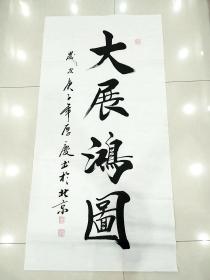 大展鴻圖
歲次庚子年厚慶書於北京